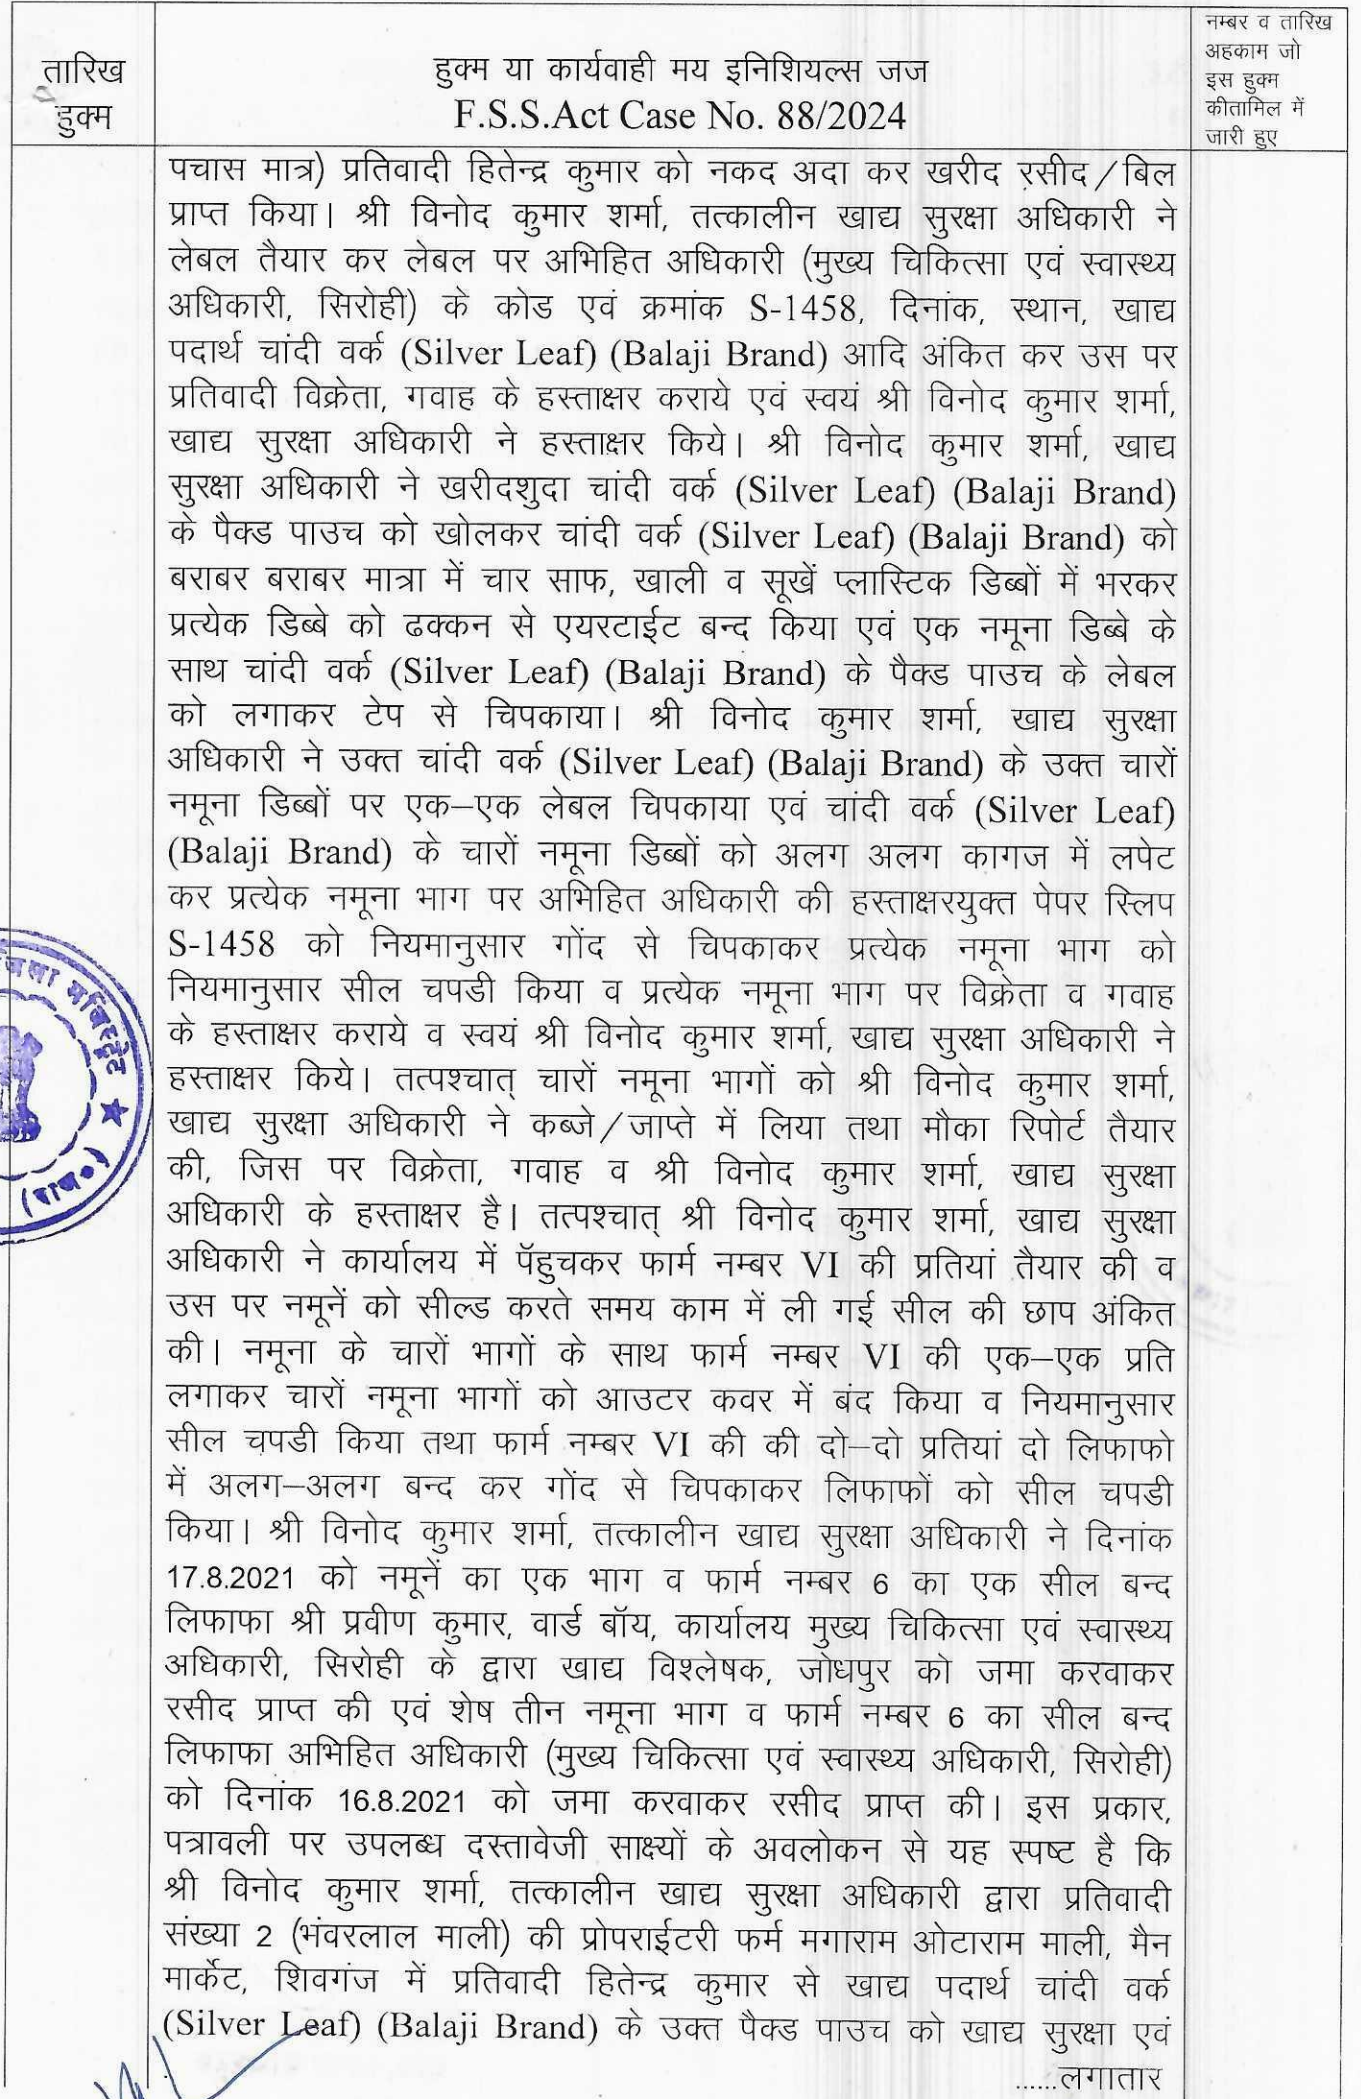 तारिख
हुक्म
हुक्म या कार्यवाही मय इनिशियल्स जज
F.S.S.Act Case No. 88/2024
नम्बर व तारिख
अहकाम जो
इस हुक्म
कीतामिल में
जारी हुए
पचास मात्र) प्रतिवादी हितेन्द्र कुमार को नकद अदा कर खरीद रसीद/बिल
प्राप्त किया। श्री विनोद कुमार शर्मा, तत्कालीन खाद्य सुरक्षा अधिकारी ने
लेबल तैयार कर लेबल पर अभिहित अधिकारी (मुख्य चिकित्सा एवं स्वास्थ्य
अधिकारी, सिरोही) के कोड एवं क्रमांक S-1458, दिनांक, स्थान, खाद्य
पदार्थ चांदी वर्क (Silver Leaf) (Balaji Brand) आदि अंकित कर उस पर
प्रतिवादी विक्रेता, गवाह के हस्ताक्षर कराये एवं स्वयं श्री विनोद कुमार शर्मा,
खाद्य सुरक्षा अधिकारी ने हस्ताक्षर किये। श्री विनोद कुमार शर्मा, खाद्य
सुरक्षा अधिकारी ने खरीदशुदा चांदी वर्क (Silver Leaf) (Balaji Brand)
के पैक्ड पाउच को खोलकर चांदी वर्क (Silver Leaf) (Balaji Brand) को
बराबर बराबर मात्रा में चार साफ, खाली व सूखें प्लास्टिक डिब्बों में भरकर
प्रत्येक डिब्बे को ढक्कन से एयरटाईट बन्द किया एवं एक नमूना डिब्बे के
साथ चांदी वर्क (Silver Leaf) (Balaji Brand) के पैक्ड पाउच के लेबल
को लगाकर टेप से चिपकाया। श्री विनोद कुमार शर्मा, खाद्य सुरक्षा
अधिकारी ने उक्त चांदी वर्क (Silver Leaf) (Balaji Brand) के उक्त चारों
नमूना डिब्बों पर एक–एक लेबल चिपकाया एवं चांदी वर्क (Silver Leaf)
(Balaji Brand) के चारों नमूना डिब्बों को अलग अलग कागज में लपेट
कर प्रत्येक नमूना भाग पर अभिहित अधिकारी की हस्ताक्षरयुक्त पेपर स्लिप
S-1458 को नियमानुसार गोंद से चिपकाकर प्रत्येक नमूना भाग को
नियमानुसार सील चपडी किया व प्रत्येक नमूना भाग पर विक्रेता व गवाह
के हस्ताक्षर कराये व स्वयं श्री विनोद कुमार शर्मा, खाद्य सुरक्षा अधिकारी ने
हस्ताक्षर किये। तत्पश्चात् चारों नमूना भागों को श्री विनोद कुमार शर्मा,
खाद्य सुरक्षा अधिकारी ने कब्जे/जाप्ते में लिया तथा मौका रिपोर्ट तैयार
की, जिस पर विक्रेता, गवाह व श्री विनोद कुमार शर्मा, खाद्य सुरक्षा
अधिकारी के हस्ताक्षर है। तत्पश्चात् श्री विनोद कुमार शर्मा, खाद्य सुरक्षा
अधिकारी ने कार्यालय में पॅहुचकर फार्म नम्बर VI की प्रतियां तैयार की व
उस पर नमूनें को सील्ड करते समय काम में ली गई सील की छाप अंकित
की। नमूना के चारों भागों के साथ फार्म नम्बर VI की एक–एक प्रति
लगाकर चारों नमूना भागों को आउटर कवर में बंद किया व नियमानुसार
सील चपडी किया तथा फार्म नम्बर VI की की दो–दो प्रतियां दो लिफाफो
में अलग–अलग बन्द कर गोंद से चिपकाकर लिफाफों को सील चपडी
किया। श्री विनोद कुमार शर्मा, तत्कालीन खाद्य सुरक्षा अधिकारी ने दिनांक
17.8.2021 को नमूनें का एक भाग व फार्म नम्बर 6 का एक सील बन्द
लिफाफा श्री प्रवीण कुमार, वार्ड बॉय, कार्यालय मुख्य चिकित्सा एवं स्वास्थ्य
अधिकारी, सिरोही के द्वारा खाद्य विश्लेषक, जोधपुर को जमा करवाकर
रसीद प्राप्त की एवं शेष तीन नमूना भाग व फार्म नम्बर 6 का सील बन्द
लिफाफा अभिहित अधिकारी (मुख्य चिकित्सा एवं स्वास्थ्य अधिकारी, सिरोही)
को दिनांक 16.8.2021 को जमा करवाकर रसीद प्राप्त की। इस प्रकार,
पत्रावली पर उपलब्ध दस्तावेजी साक्ष्यों के अवलोकन से यह स्पष्ट है कि
श्री विनोद कुमार शर्मा, तत्कालीन खाद्य सुरक्षा अधिकारी द्वारा प्रतिवादी
संख्या 2 (भंवरलाल माली) की प्रोपराईटरी फर्म मगाराम ओटाराम माली, मैन
मार्केट, शिवगंज में प्रतिवादी हितेन्द्र कुमार से खाद्य पदार्थ चांदी वर्क
(Silver Leaf) (Balaji Brand) के उक्त पैक्ड पाउच को खाद्य सुरक्षा एवं
......लगातार
जिला मजिस्ट्रेट
(राज०)